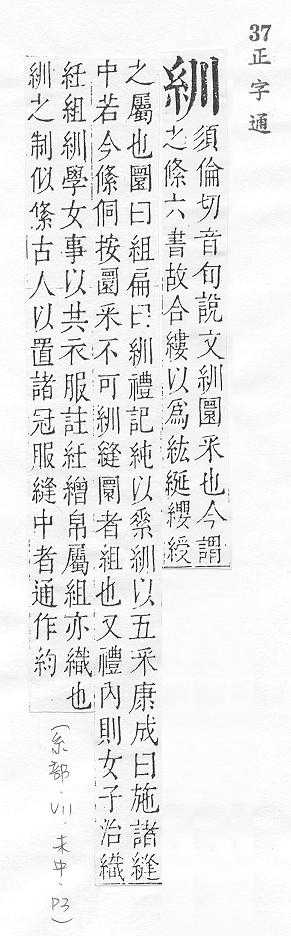 37
正字通
紃
須倫切音旬說文紃圜采也今謂
之絛六書故合縷以為紘綖纓綬
之屬也圜曰組扁曰紃禮記純以素紃以五采康成曰施諸縫
中若今絛侗按圜采不可紃縫圜者組也又禮內則女子治織
紝組紃學女事以共衣服註紝繒帛屬組亦織也
紃之制似絛古人以置諸冠服縫中者通作約
(糸部.VII.未中.P3)